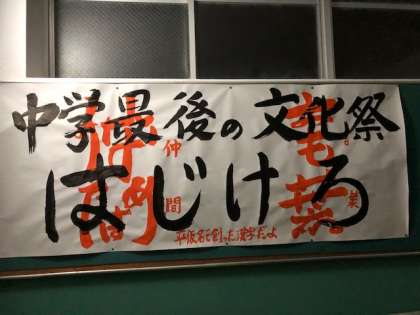 中学最後の文化祭
はじけろ
仲
間
美
平仮名で創った漢字だよ